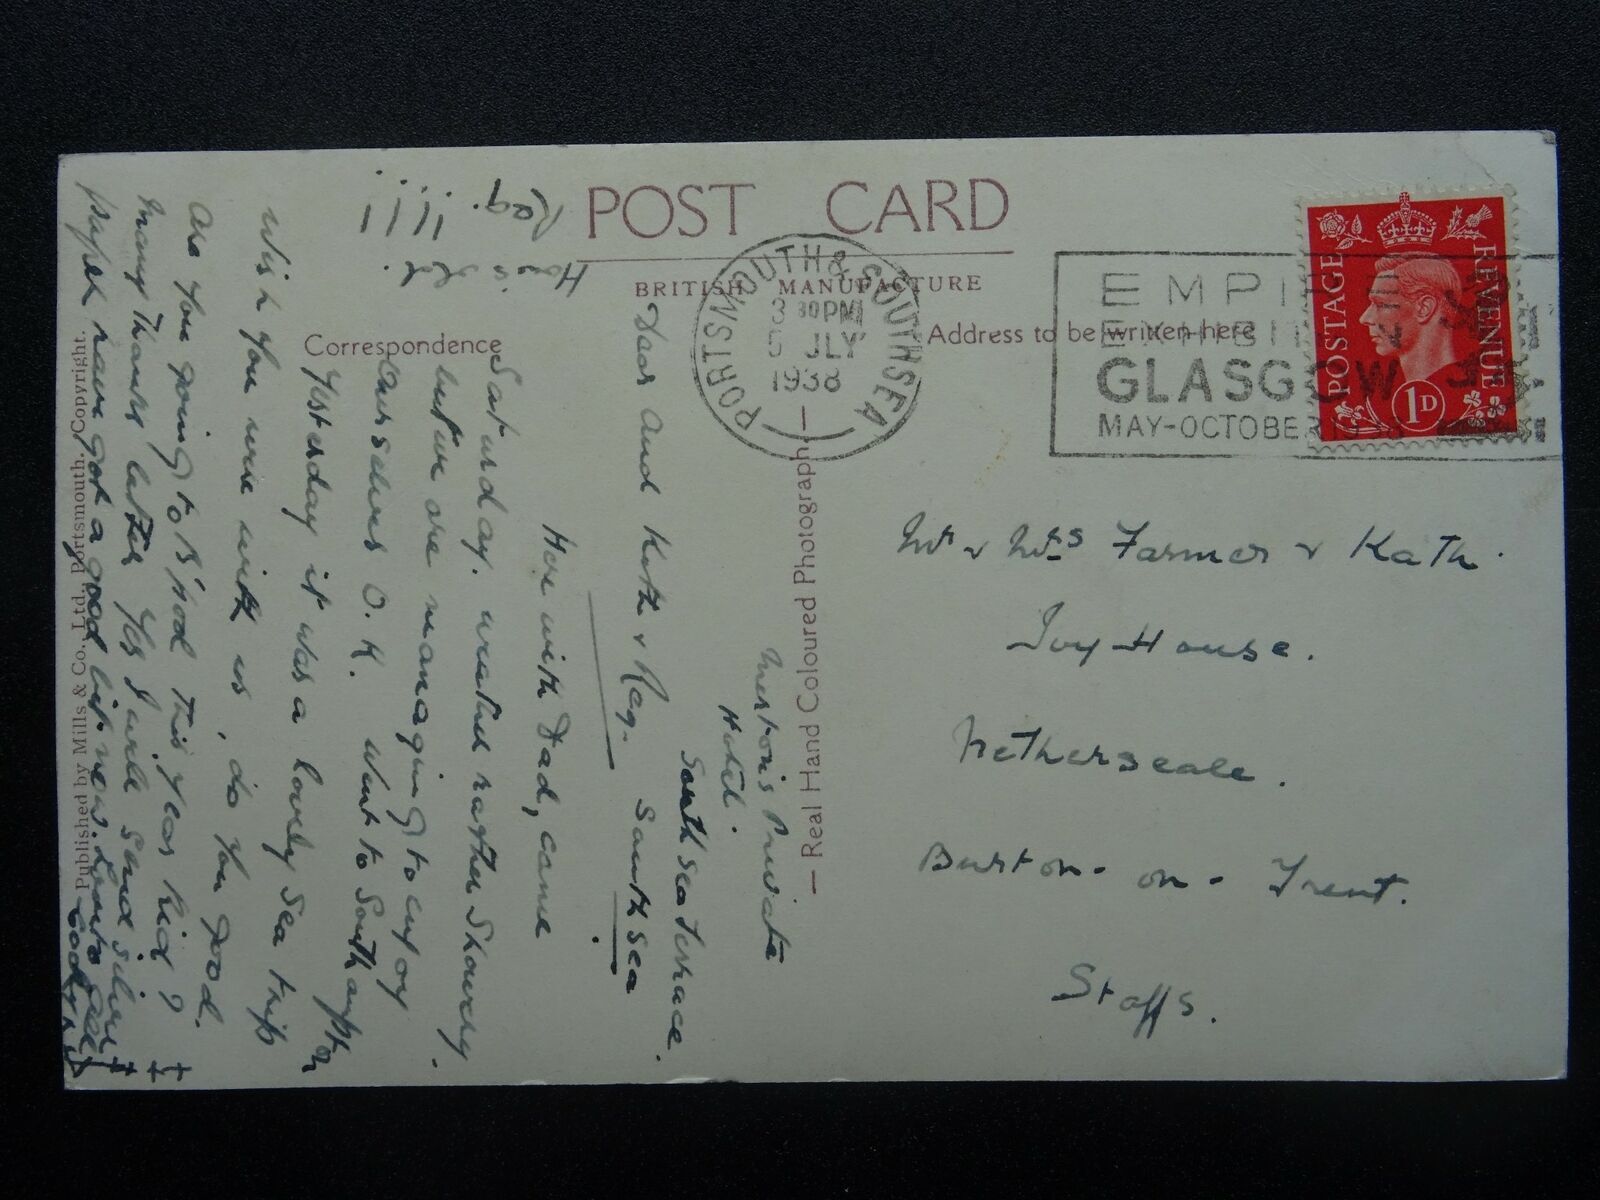 POST CARD
BRITISH MANUFACTURE
Correspondence
Address to be written here
PORTSMOUTH & SOUTHSEA
3 30PM
5 JLY
1938
EMPIRE
EXHIBITION
GLASGOW
MAY-OCTOBER
POSTAGE REVENUE
1D
Mr & Mrs Farmer & Kath.
Ivy House.
Netherseale.
Burton-on-Trent.
Staffs.
— Real Hand Coloured Photograph. —
Private
Hotel.
South Sea Terrace.
South Sea
Dear Aund Kath & Reg.
Here with Dad, came
Saturday. weather rather Showery.
but we are managing to enjoy
Ourselves O.K. Went to Southampton
Yesterday it was a lovely Sea trip
Wish you were with us, do you good.
Are you going to B'Pool this year kid?
Many thanks letter Yes I will send
paper have got a good bit now. Love to all
How's
Reg.
Published by Mills & Co., Ltd., Portsmouth. Copyright.